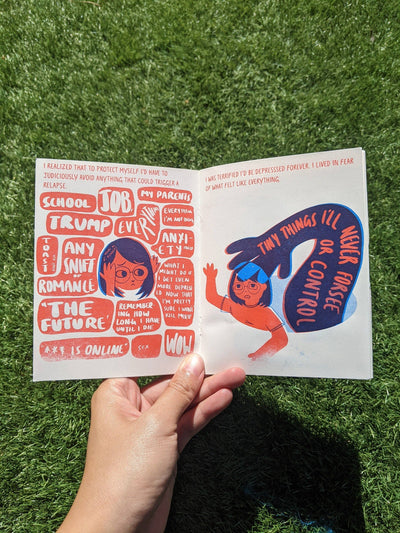 I REALIZED THAT TO PROTECT MYSELF I'D HAVE TO
JUDICIOUSLY AVOID ANYTHING THAT COULD TRIGGER A
RELAPSE.
SCHOOL
JOB
MY PARENTS
TRUMP
EVERYTHING
I'M NOT DOING
ANXI-
ETY
TOAST
ANY
SNIFF
OF
ROMANCE
WHAT I
MIGHT DO IF
I GET EVEN
MORE DEPRESSED
NOW THAT
I'M PRETTY
SURE I WON'T
KILL MYSELF
"THE
FUTURE"
REMEMBER
ING HOW
LONG I HAVE
UNTIL I DIE
"A** IS ONLINE"
SEX
WOW
I WAS TERRIFIED I'D BE DEPRESSSED FOREVER. I LIVED IN FEAR
OF WHAT FELT LIKE EVERYTHING.
TINY THINGS I'LL NEVER FORSEE
OR CONTROL